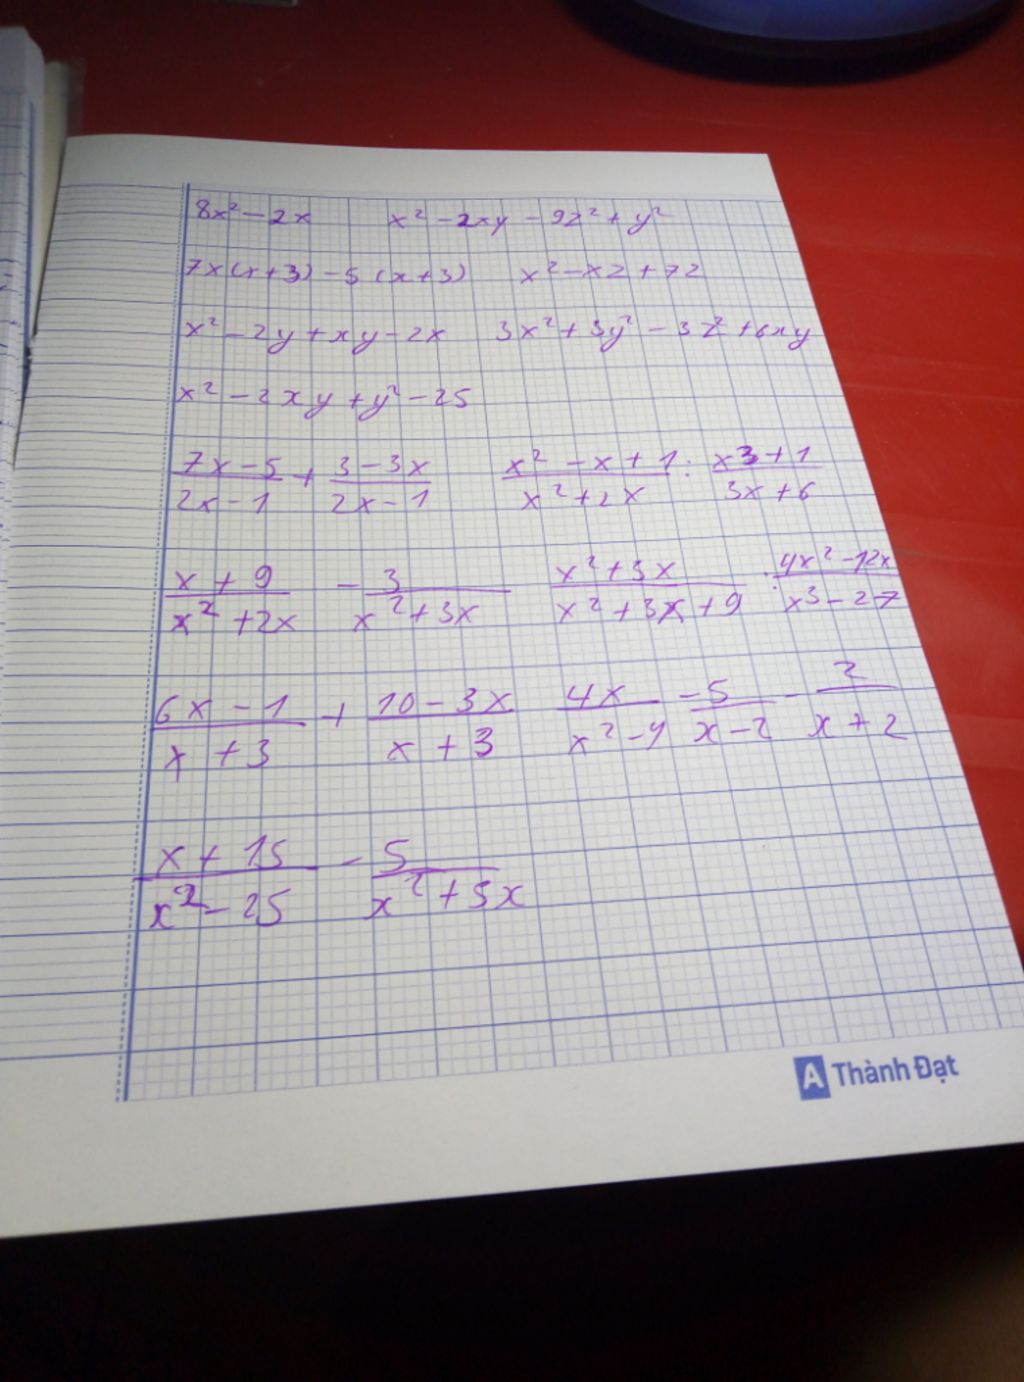 8x² - 2x    x² - 2xy - 9z² + y²
7x(x+3) - 5(x+3)    x² - xz + 72
x² - 2y + xy - 2x    3x² + 3y² - 3z² + 6xy
x² - 2xy + y² - 25
(7x-5)/(2x-1) + (3-3x)/(2x-1)    (x² - x + 1)/(x² + 2x) : (x³+1)/(3x+6)
(x+9)/(x²+2x) - 3/(x²+3x)    (x²+3x)/(x²+3x+9) : (4x²-12x)/(x³-27)
(6x-1)/(x+3) + (10-3x)/(x+3)    4x/(x²-4) - 5/(x-2) - 2/(x+2)
(x+15)/(x²-25) - 5/(x²+5x)
A Thành Đạt